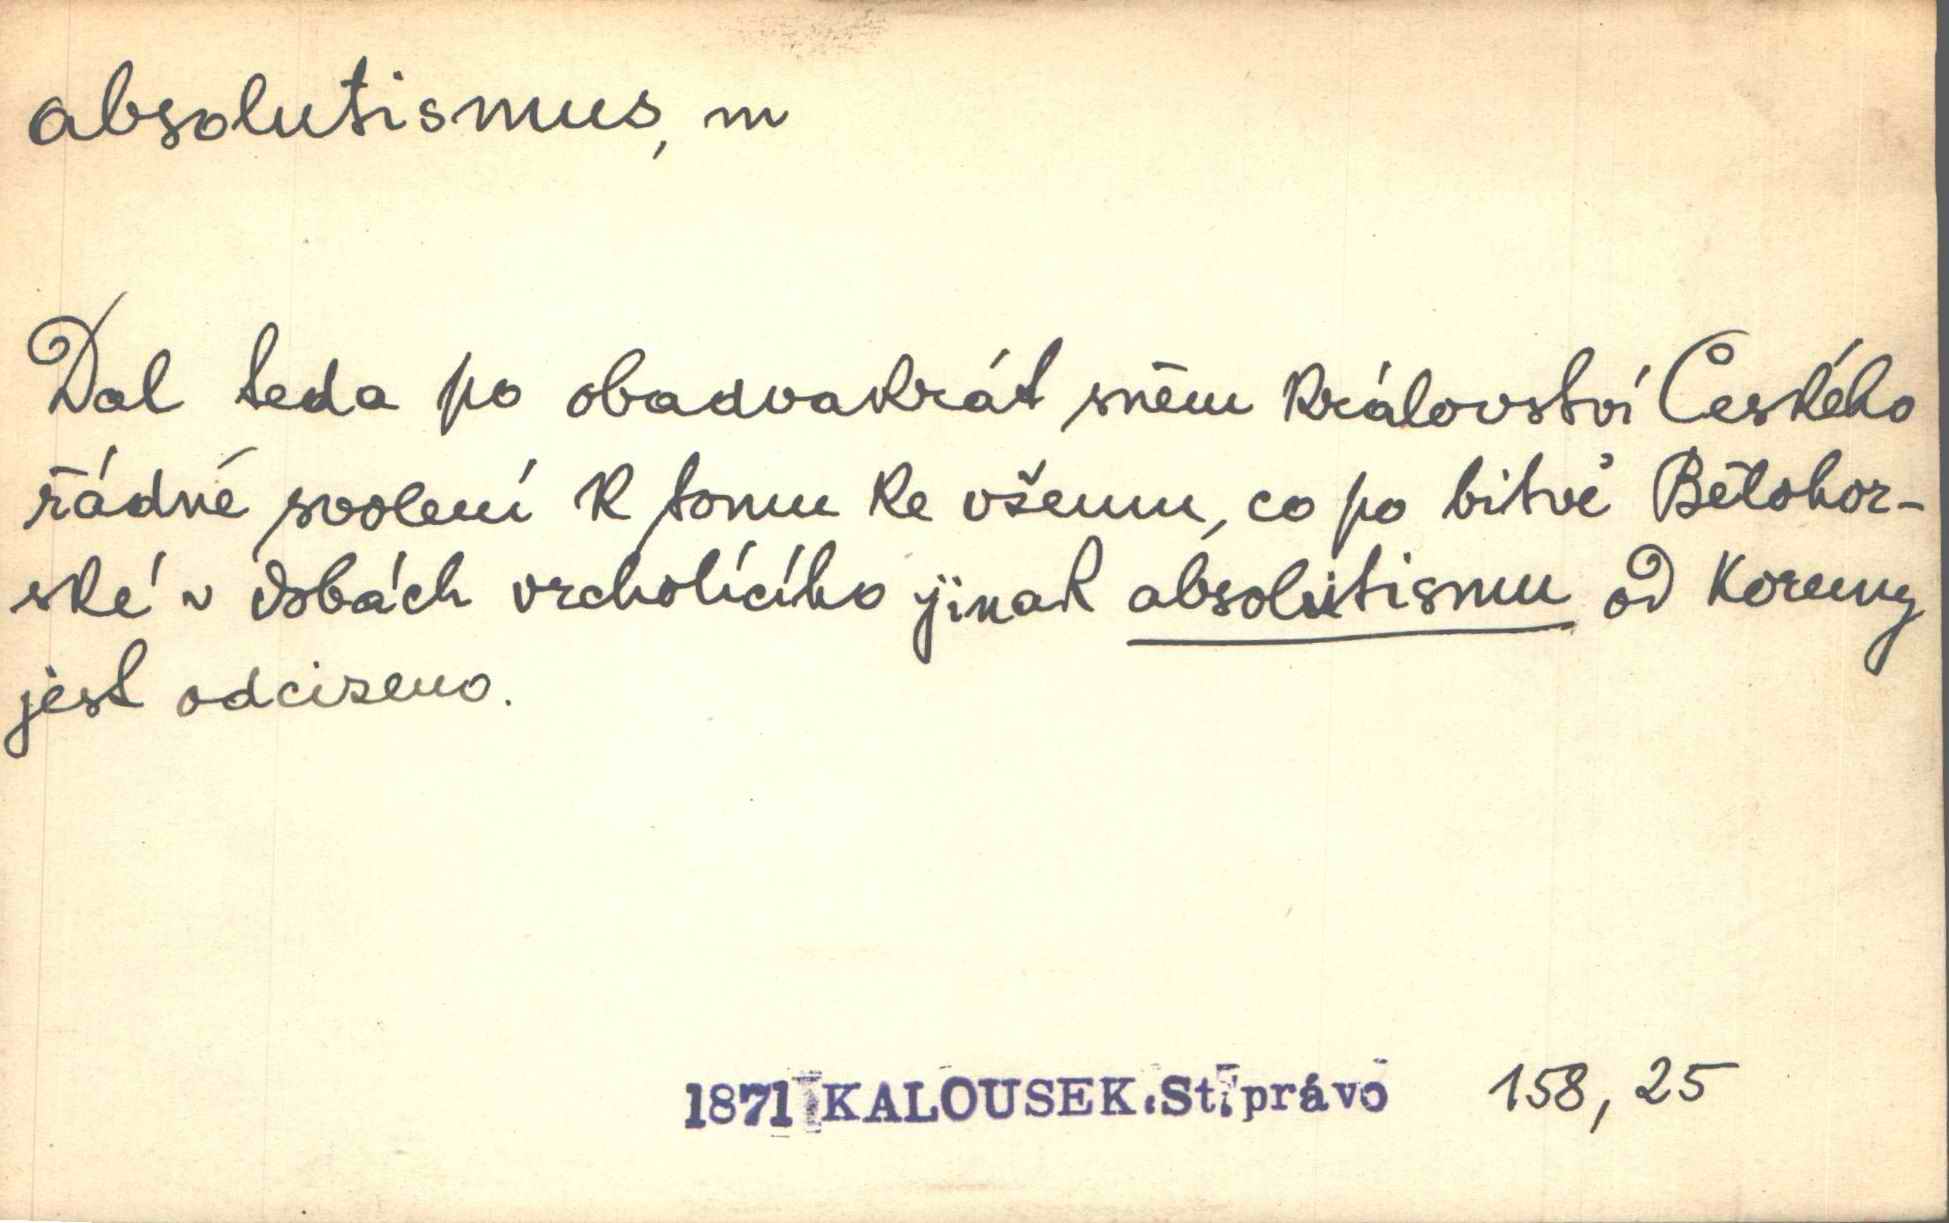 absolutismus, m
Dal teda po obadvakrát sněm království Českého
řádné svolení k tomu ke všemu, co po bitvě Bělohor-
ské v dobách vrcholícího jinak absolutismu od koruny
jest odcizeno.
1871 KALOUSEK. St. právo 158, 25